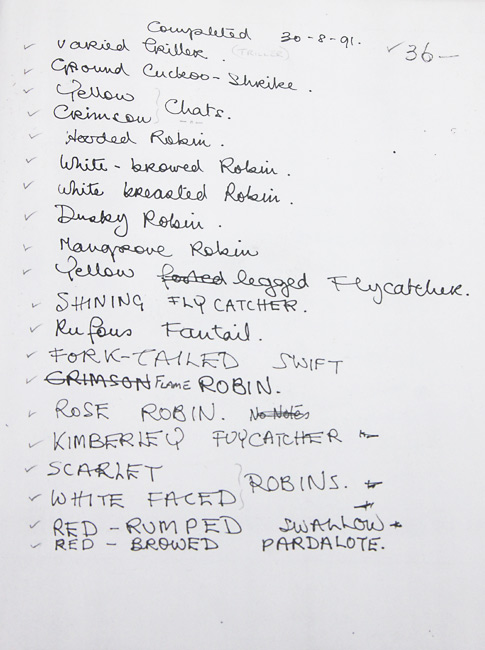 Completed 30-8-91.
✓ 36—
Varied Griller. (TRILLER)
Ground Cuckoo-Shrike.
Yellow
Crimson } Chats.
Hooded Robin.
White-browed Robin.
White breasted Robin.
Dusky Robin.
Mangrove Robin
Yellow footed legged Flycatcher.
SHINING FLYCATCHER.
Rufous Fantail.
FORK-TAILED SWIFT
CRIMSON FLAME ROBIN.
ROSE ROBIN. No Notes
KIMBERLEY FLYCATCHER
SCARLET
WHITE FACED } ROBINS.
RED-RUMPED SWALLOW
RED-BROWED PARDALOTE.